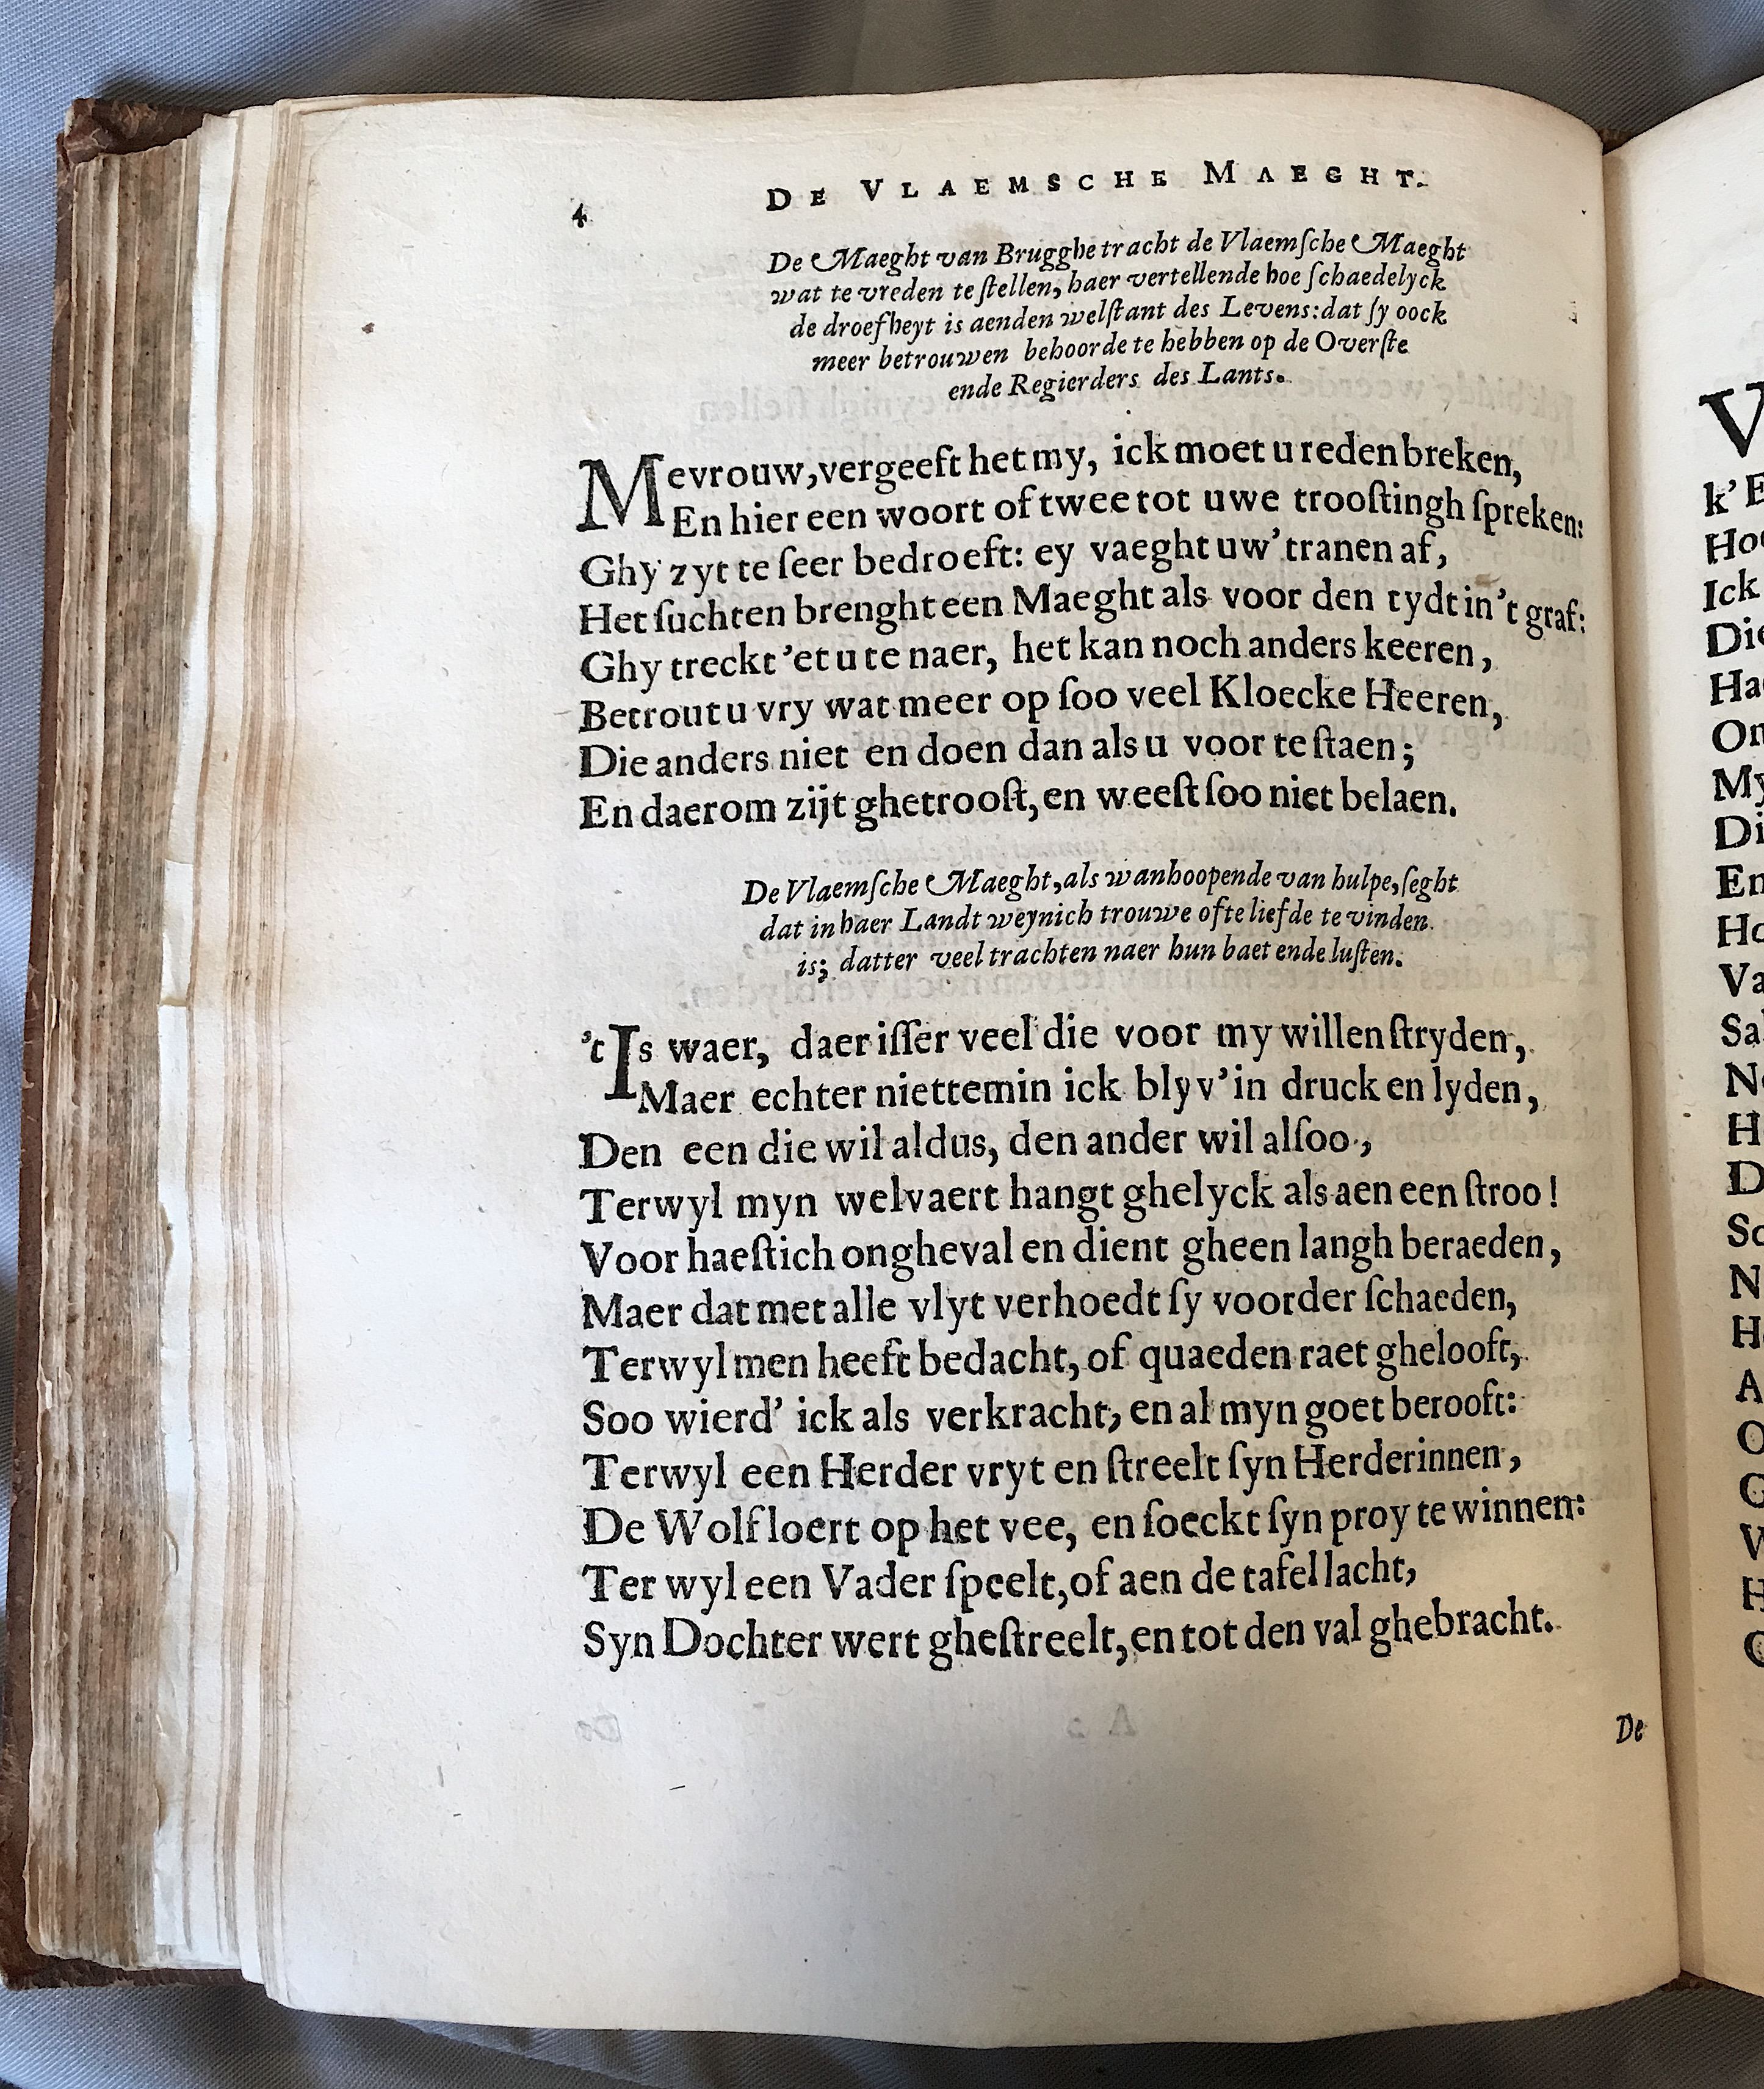 4
DE VLAEMSCHE MAEGHT.
De Maeght van Brugghe tracht de Vlaemſche Maeght
wat te vreden te ſtellen, haer vertellende hoe ſchaedelyck
de droefheyt is aenden welſtant des Levens: dat ſy oock
meer betrouwen behoorde te hebben op de Overſte
ende Regierders des Lants.
Mevrouw, vergeeft het my, ick moet u reden breken,
En hier een woort of twee tot uwe trooſtingh ſpreken:
Ghy zyt te ſeer bedroeft: ey vaeght uw' tranen af,
Het ſuchten brenght een Maeght als voor den tydt in 't graf:
Ghy treckt 'et u te naer, het kan noch anders keeren,
Betrout u vry wat meer op ſoo veel Kloecke Heeren,
Die anders niet en doen dan als u voor te ſtaen;
En daerom zijt ghetrooſt, en weeſt ſoo niet belaen.
De Vlaemſche Maeght, als wanhoopende van hulpe, ſeght
dat in haer Landt weynich trouwe ofte liefde te vinden
is; datter veel trachten naer hun baet ende luſten.
't Is waer, daer iſſer veel die voor my willen ſtryden,
Maer echter niettemin ick blyv' in druck en lyden,
Den een die wil aldus, den ander wil alſoo,
Terwyl myn welvaert hangt ghelyck als aen een ſtroo!
Voor haeſtich ongheval en dient gheen langh beraeden,
Maer dat met alle vlyt verhoedt ſy voorder ſchaeden,
Terwyl men heeft bedacht, of quaeden raet ghelooft,
Soo wierd' ick als verkracht, en al myn goet berooft:
Terwyl een Herder vryt en ſtreelt ſyn Herderinnen,
De Wolf loert op het vee, en ſoeckt ſyn proy te winnen:
Ter wyl een Vader ſpeelt, of aen de tafel lacht,
Syn Dochter wert gheſtreelt, en tot den val ghebracht.
De
V
k' E
Ho
Ick
Die
Ha
On
My
Di
En
Ho
Va
Sa
N
H
D
So
N
H
A
O
G
V
H